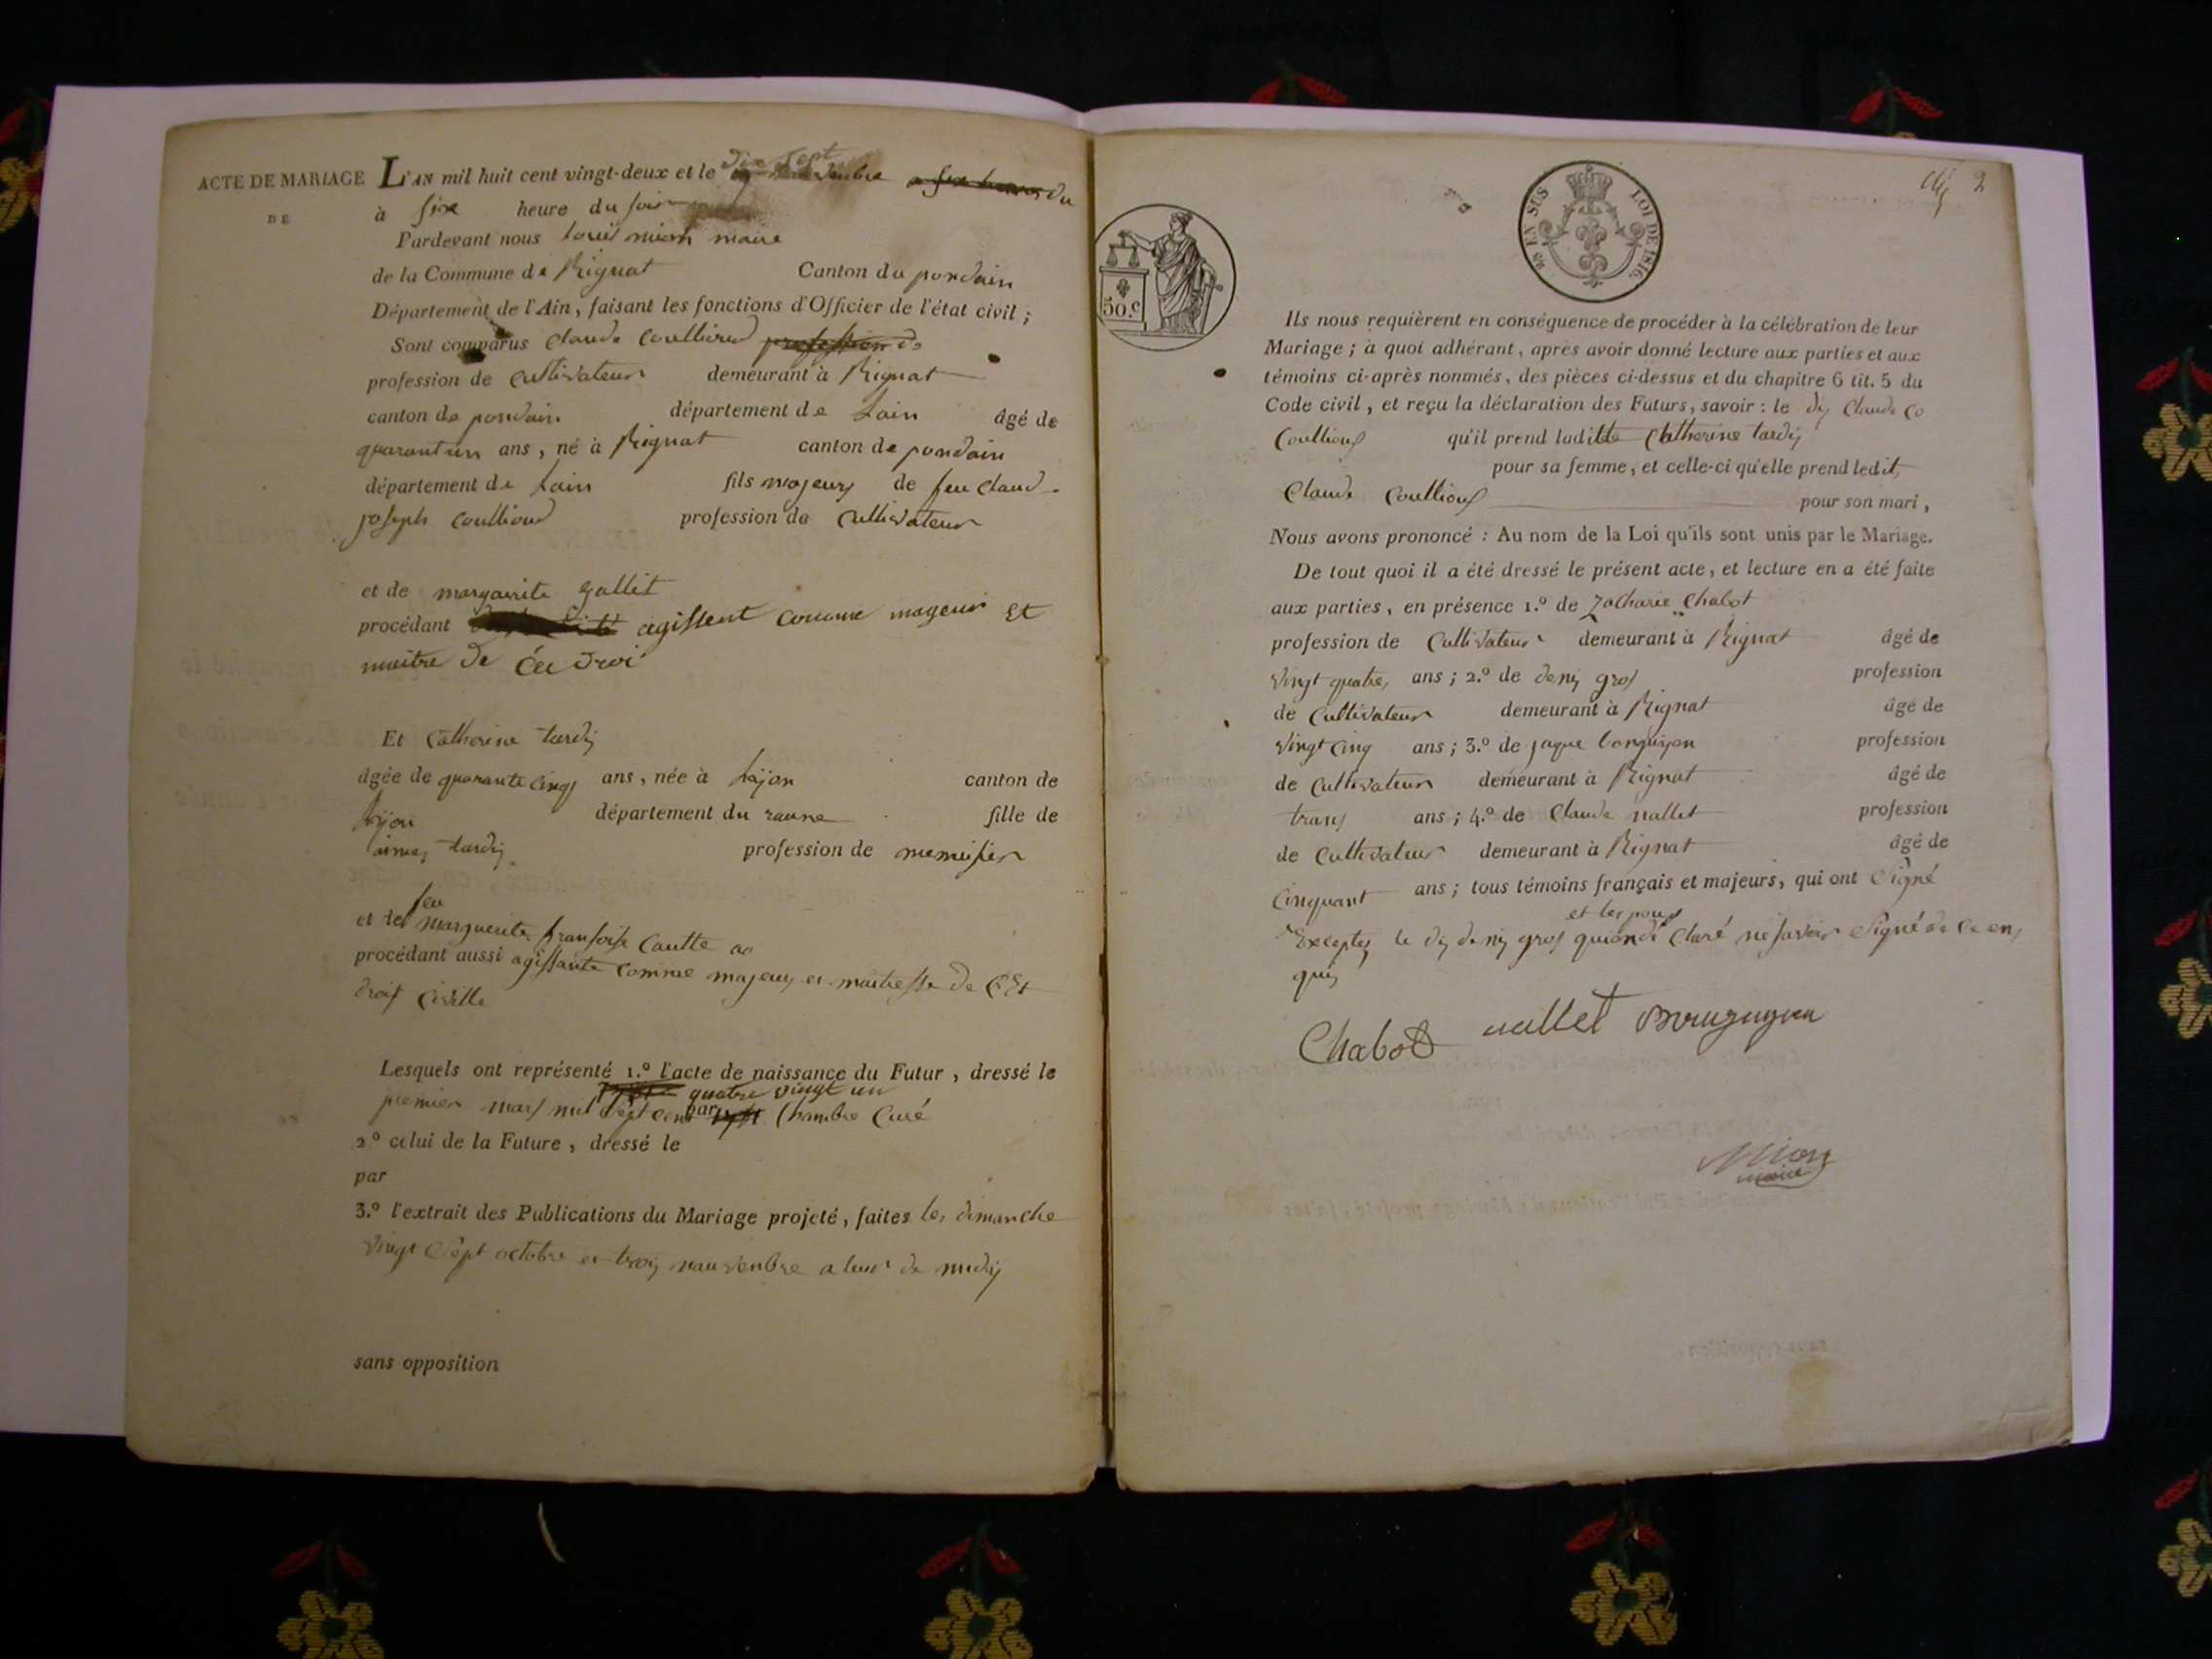 ACTE DE MARIAGE
DE
L'AN mil huit cent vingt-deux et le dix sept
à six heure du soir
Pardevant nous louis mion maire
de la Commune de Rignat Canton du pondain
Département de l'Ain, faisant les fonctions d'Officier de l'état civil ;
Sont comparus Claude Coullioud
profession de Cultivateur demeurant à Rignat
canton de pondain département de Lain âgé de
quarant un ans, né à Rignat canton de pondain
département de Lain fils majeurs de feu Claude
joseph Coullioud profession de Cultivateur
et de margairite gallit
procédant agissent comme mageur et
maitre de droi
Et Catherine tardij
âgée de quarante cinq ans, née à canton de
département du raune fille de
tardij profession de
et de feu Marguerite fransoise
procédant aussi agissante comme majeurs et maitresse de
droit Civille
Lesquels ont représenté 1.º l'acte de naissance du Futur, dressé le
premier mars mil sept cent quatre vingt un
par Chambre Curé
2º celui de la Future, dressé le
par
3.º l'extrait des Publications du Mariage projeté, faites les dimanche
vingt Sept octobre et trois nauvenbre a leur de midij
sans opposition
2
EN SUS LOI DE 1816
50.c
Ils nous requièrent en conséquence de procéder à la célébration de leur
Mariage ; à quoi adhérant, après avoir donné lecture aux parties et aux
témoins ci-après nommés, des pièces ci-dessus et du chapitre 6 tit. 5 du
Code civil, et reçu la déclaration des Futurs, savoir : le dij Claude Co
Coullious qu'il prend ladite Chtherine tardij
pour sa femme, et celle-ci qu'elle prend ledit
Claude Coullious pour son mari,
Nous avons prononcé : Au nom de la Loi qu'ils sont unis par le Mariage.
De tout quoi il a été dressé le présent acte, et lecture en a été faite
aux parties, en présence 1.º de Zacharie Chabot
profession de Cultivateur demeurant à Rignat âgé de
vingt quatre ans ; 2.º de denij gros profession
de Cultivateur demeurant à Rignat âgé de
vingt cinq ans ; 3.º de jaque profession
de Cultivateur demeurant à Rignat âgé de
ans ; 4.º de Claude nallet profession
de Cultivateur demeurant à Rignat âgé de
Cinquant ans ; tous témoins français et majeurs, qui ont Signé
et les
Exceptez le dij denij gros claré ne savoir Signé de ce en
quij
Chabot nallet
Mion
maire